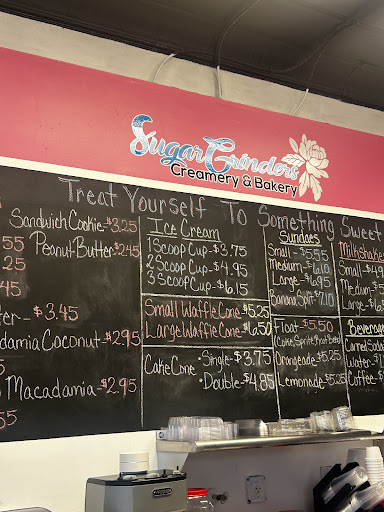 Sugar Grinders
Creamery & Bakery
Treat Yourself To Something Sweet
Sandwich Cookie-$3.25
55 Peanut Butter $2.45
25
45
- $3.45
Coconut-$2.95
Macadamia-$2.95
55
Ice Cream
1 Scoop Cup-$3.75
2 Scoop Cup-$4.95
3 Scoop Cup-$6.15
Small Waffle Cone $5.25
Large Waffle Cone $6.50
Cake Cone •Single-$3.75
•Double-$4.85
Sundaes
Small-$5.55
Medium-$6.10
Large-$6.95
Banana Split $7.10
Float-$5.50
(Coke, Sprite, Root Beer)
Orangeade $5.25
Lemonade-$5.25
Milkshake
Small-$4.9
Medium-$
Large-$6.
Beverage
Water-$
Coffee-$